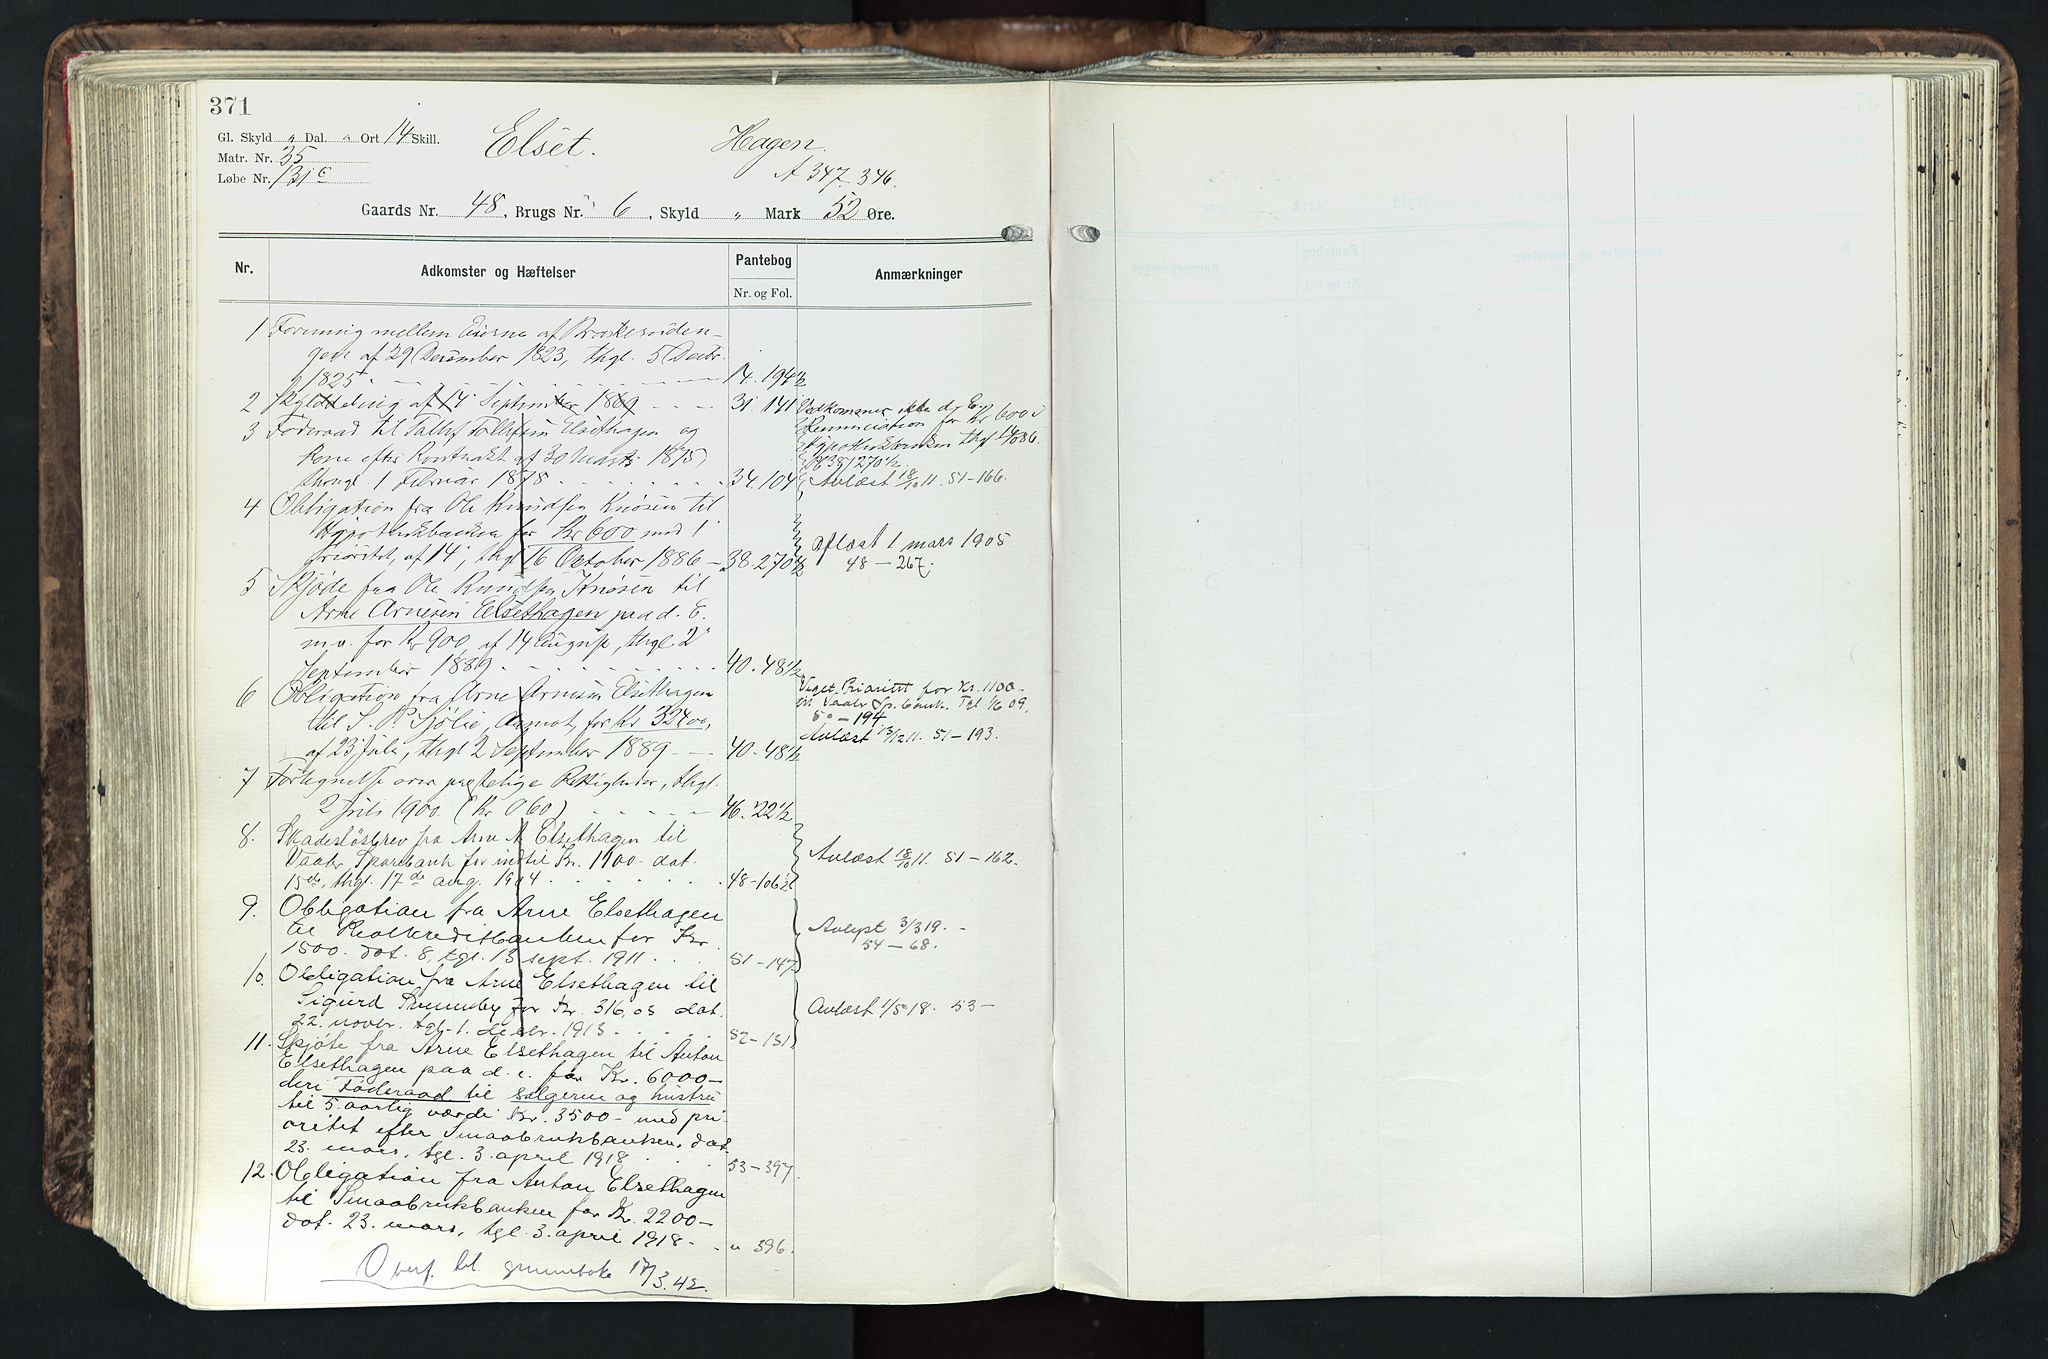 371
Gl. Skyld " Dal. " Ort 14 Skill.
Matr. Nr. 35
Løbe Nr. 131c
Elset. Hagen.
A 347. 346.
Gaards Nr. 48, Brugs Nr. 6, Skyld " Mark 52 Øre.
Nr. Adkomster og Hæftelser Pantebog Anmærkninger
Nr. og Fol.
1 Forening mellem Eierne af
gen af 29 December 1823, thgl. 5 Decbr.
1825 14. 194½
2 Skylddeling af 14 September 1869 31. 141
3 Føderaad til Elsethagen og
Kone efter Kontrakt af 30 Marts 1875,
thingl. 1 Februar 1878 34. 104
Vedkommer ikke d. E.
Renunciation for Kr 600 i
Hypothekbanken thgl 16/10 86.
38/270½
Avlæst 18/10 11. 51-166.
4 Obligation fra Ole Knudsen Knøsen til
Hypothekbanken for Kr 600 mod 1
Prioritet, af 14, thgl 16 October 1886 38. 270½
Aflæst 1 mars 1905
48-267.
5 Skjøde fra Ole Knudsen Knøsen til
Arne Arnesen Elsethagen paa d. E.
m.v. for Kr 900, af 14 August, thgl 2
September 1889 40. 48½
6 Obligation fra Arne Arnesen Elsethagen
til Aamot, for Kr 3240,
af 23 Juli, thgl 2 September 1889 40. 48½
Veget Prioritet for Kr. 1100.
til Vaaler Sp.bank. Tgl 1/6 09.
50-194
Avlæst 13/12 11. 51-193.
7 Fortegnelse over Rettigheder, thgl.
2 Juli 1900 (Kr 0 60) 46. 22½
8. Skadesløsbrev fra Arne A. Elsethagen til
Vaaler Sparebank for indtil Kr. 1100 dat.
15de, thgl. 17de aug. 1904 48-106½
Avlæst 18/10 11. 51-162.
9. Obligation fra Arne Elsethagen
til Realkreditbanken for Kr.
1500. dat. 8, tgl. 13 sept. 1911 51-147
Avlyst 3/3 19.
54-68.
10. Obligation fra Arne Elsethagen til
Sigurd for Kr. 316,03 dat.
22. novbr. tgl. 1. decbr. 1913 52-131
Avlæst 1/5 18. 53-
11. Skjøte fra Arne Elsethagen til Anton
Elsethagen paa d. e. for Kr. 6000-
deri Føderaad til sælgeren og hustru
til 5 aarlig værdi Kr. 3500- med pri
oritet efter Smaabrukbanken, dat.
23. mars, tgl. 3. april 1918 53-397.
12. Obligation fra Anton Elsethagen
til Smaabrukbanken for Kr. 2200-
dat. 23. mars, tgl. 3. april 1918 " 396.
Overf. til grunnboka 17/3.42.